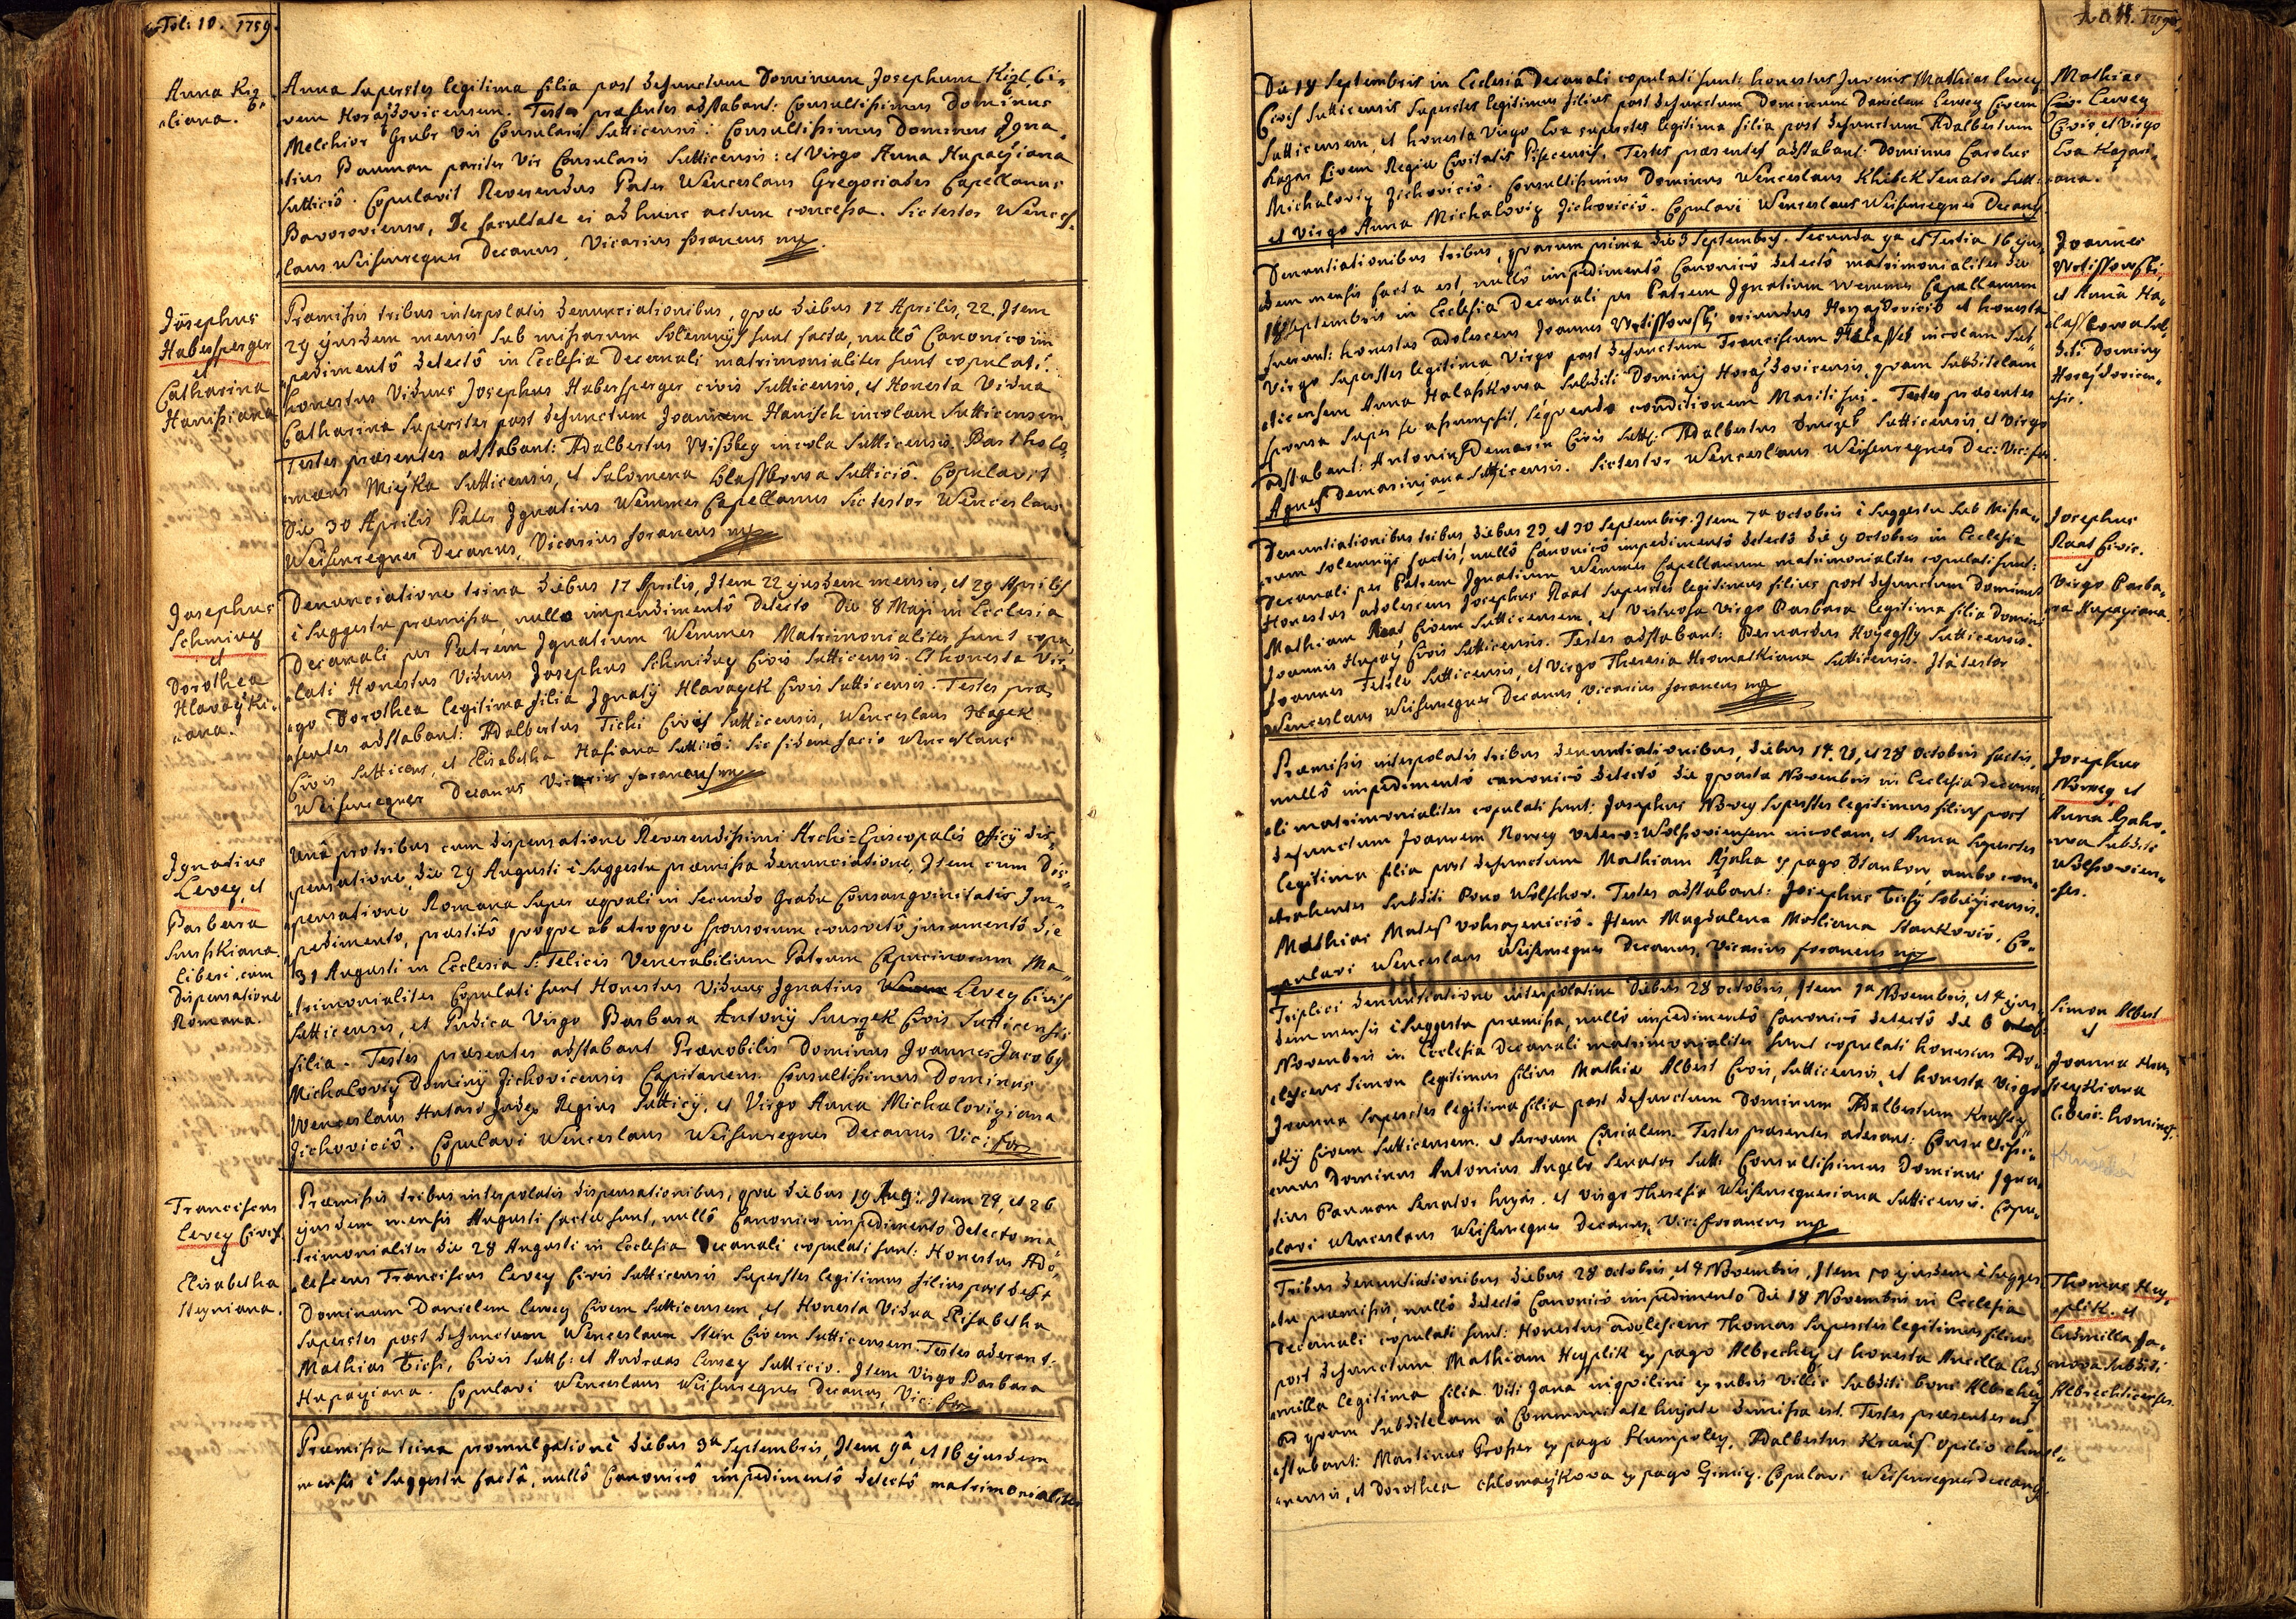 Fol: 10. 1759.
Anna Kiz
liana.
Anna Superstes legitima filia post defunctum Dominum Josephum Kizl, Ci-
vem Horaždovicensem. Testes praesentes adstabant: Consultissimus Dominus
Melchior Grubr Vir Consularis Sutticensis: Consultissimus Dominus Igna-
tius Bauman pariter Vir Consularis Sutticensis: et Virgo Anna Hupaÿiana
Sutticiô. Copulavit Reverendus Pater Wenceslaus Gregoriades Capellanus
Bavoroviensis, De facultate ei ad hunc actum concessa. Sic testor Wences-
laus Weisenregner Decanus, Vicarius foraneus mp
Josephus
Habersperger
et
Catharina
Hanishiana
Praemissis tribus interpolatis denunciationibus, quae diebus 17 Aprilis, 22, Item
29 ejusdem mensis sub missarum Solemnijs sunt factae, nullô Canonico im
pedimentô detectô in Ecclesia Decanali matrimonialiter sunt copulati:
honestus Viduus Josephus Habersperger civis Sutticensis, et Honesta Vidua
Catharina Superstes post defunctum Joannem Hanisch incolam Sutticensem
Testes praesentes adstabant: Adalbertus incola Sutticensis, Bartholo-
maeus Miejka Sutticensis, et Salomena Sutticiô. Copulavit
Die 30 Aprilis Pater Ignatius Wemmer Capellanus Sic testor Wenceslaus
Weisenregner Decanus, Vicarius foraneus mp
Josephus
Schmiday
et
Dorothea
Hlavaÿki-
ana.
Denunciatione trina diebus 17 Aprilis, Item 22 ejusdem mensis, et 29 Aprilis
è Suggestu praemissa, nullo impendimentô Detecto Die 8 Maji in Ecclesia
Decanali per Patrem Ignatium Wemmer Matrimonialiter sunt copu
lati Honestus Viduus Josephus Schmiday Civis Sutticensis. et honesta Vir
go Dorothea legitima filia Ignatÿ Hlavaÿek Civis Sutticensis. Testes prae
sentes adstabant: Adalbertus Tichi Civis Sutticensis, Wenceslaus Hagek
Civis Sutticens, et Elisabetha Hasiana Sutticiô: Sic fidem facio Wenceslaus
Weisenregner Decanus Vicarius foraneus mp
Ignatius
Levey, et
Barbara
Smrshkiana.
liberi, cum
Dispensatione
Romana.
Unâ pro tribus cum dispensatione Reverendissimi Archi=Episcopalis officij dis-
pensatione, die 29 Augusti è Suggestu praemissa denunciatione, Item cum Dis-
pensatione Romana super aequali in Secundo gradu Consanguinitatis Im-
pedimento, praestitô quoque ab utroque sponsorum consvetô juramentô die
31 Augusti in Ecclesia S: Felicis Venerabilium Patrum Capucinorum Ma-
trimonialiter Copulati sunt Honestus Viduus Ignatius Levey Civis
Sutticensis, et Pudica Virgo Barbara Antonij Smrzek Civis Sutticensis
filia. Testes praesentes adstabant Praenobilis Dominus Joannes Jacobus
Michaloviÿ Dominij Zichovicensis Capitaneus. Consultissimus Dominus
Wenceslaus Judex Regius Sutticij, et Virgo Anna Michaloviziana
Zichoviciô. Copulavi Wenceslaus Weisenregner Decanus Vic: for
Franciscus
Levey Civis.
et
Elisabetha
Steyniana.
Praemissis tribus interpolatis dispensationibus, quae diebus 19 Aug: Item 24, et 26
ejusdem mensis Augusti factae sunt, nullô Canonico impedimento detecto ma-
trimonialiter die 28 Augusti in Ecclesia Decanali copulati sunt: Honestus Ado-
lescens Franciscus Levey Civis Sutticensis Superstes legitimus filius post def+
Dominum Danielem Levey Civem Sutticensem, et Honesta Vidua Elisabetha
Superstes post defunctum Wenceslaum Stein Civem Sutticensem. Testes aderant:
Mathias Tichi, Civis Sutt: et Andreas Levey Sutticio. Item Virgo Barbara
Hupaÿiana. Copulavi Wenceslaus Weisenregner Decanus, Vic: for
Praemissa trina promulgatione diebus 3a Septembris, Item 9â, et 16 ejusdem
mensis è Suggestu factâ, nullô Canonicô impedimentô detectô matrimonialiter
Fol. 11. 1759
Die 18 Septembris in Ecclesia Decanali copulati sunt: honestus Juvenis Mathias Levey
Civis Sutticensis Superstes legitimus filius post defunctum Dominum Danielem Levey Civem
Sutticensem, et honesta Virgo Eva superstes legitima filia post defunctum Adalbertum
Kazar Civem Regiae Civitatis Piscensis. Testes praesentes adstabant: Dominus Carolus
Michaloviz Zichoviciô. Consultissimus Dominus Wenceslaus Khibek Senator Sutt:
et Virgo Anna Michaloviz Zichoviciô. Copulavi Wenceslaus Weisenregner Decang
Mathias
Levey
Civis et Virgo
Eva Kazari-
ana.
Denuntiationibus tribus, quarum prima die 3 Septembris. Secunda 9a et Tertia 16 ejus-
dem mensis facta est, nullô impedimentô Canonicô detectô matrimonialiter die
18 Septembris in Ecclesia Decanali per Patrem Ignatium Wemmer Capellanum
juncti: honestus adolescens Joannes Wrtissowski oriundus Horazdoviciô et honesta
Virgo Superstes legitima Virgo post defunctum Franciscum Halasset incolam Sut-
ticensem Anna Halaskowa Subditi Dominij Horazdovicensis, quam Subditelam
sponsa super se assumpsit, sequendo conditionem Mariti sui. Testes praesentes
adstabant: Antonius Demarin Civis Sutt: Adalbertus Smrzek Sutticensis, et Virgo
Agnes Demariniana Sutticensis. Sic testor Wenceslaus Weisenregner Dec: Vic: for.
Joannes
Wrtissowski,
et Anna Ha-
laskowa Sub-
diti Dominij
Horazdovicen-
sis.
Denuntiationibus tribus diebus 29 et 30 Septembris. Item 7a octobris è Suggestu Sub Missa-
rum Solemnijs factis, nullô Canonicô impedimentô detectô die 9 octobris in Ecclesia
Decanali per Patrem Ignatium Wemmer Capellanum matrimonialiter copulati sunt:
Honestus adolescens Josephus Raat Superstes legitimus filius post defunctum Dominum
Mathiam Raat Civem Sutticensem, et Virtuosa Virgo Barbara legitima filia Domini
Joannis Hupaÿ Civis Sutticensis. Testes adstabant: Bernardus Sutticensis.
Joannes Sutticensis, et Virgo Theresia Hromatkiana Sutticensis. Ita testor
Wenceslaus Weisenregner Decanus, Vicarius foraneus mp
Josephus
Raat Civis.
et
Virgo Barba-
ra Hupaÿiana.
Praemissis interpolatis tribus denuntiationibus, diebus 14, 21, et 28 Octobris factis,
nullô impedimentô canonicô detectô die quarta Novembris in Ecclesia Decana-
li matrimonialiter copulati sunt: Josephus Novey Superstes legitimus filius post
defunctum Joannem Novey vetero=Wolssoviensem incolam, et Anna Superstes
legitima filia post defunctum Mathiam Rzaha ex pago Stankov, ambo con-
trahentes Subditi Bono Wolschov. Testes adstabant: Josephus Tichij
Mathias Matess Item Magdalena Stankoviô. Co-
pulavi Wenceslaus Weisenregner Decanus, Vicarius foraneus mp
Josephus
Novey, et
Anna Rzaho-
wa Subditi
Wolssovien-
ses.
Triplici denuntiatione interpolatim diebus 28 octobris, Item 1a Novembris, et 4 ejus-
dem mensis è Suggestu praemissa, nullô impedimentô Canonicô detectô die 6
Novembris in Ecclesia Decanali matrimonialiter sunt copulati honestus Ado-
lescens Simon legitimus filius Mathiae Albert Civis Sutticensis, et honesta Virgo
Joanna Superstes legitima filia post defunctum Dominum Adalbertum Krussey-
kÿ Civem Sutticensem. et Servum Curialem. Testes praesentes aderant: Consultissi-
mus Dominus Antonius Angele Senator Sutt: Consultissimus Dominus Igna-
tius Bauman Senator hujas. et Virgo Theresia Weisenregneriana Sutticensis. Copu-
lavi Wenceslaus Weisenregner Decanus, Vic: foraneus mp
Simon Albert
et
Joanna Krus
seykiana
liberi homines.
Tribus denuntiationibus diebus 28 octobris, et 4 Novembris, Item 10 ejusdem è Sugges
tu praemissis, nullô detectô Canonicô impedimento Die 18 Novembris in Ecclesia
Decanali copulati sunt: Honestus adolescens Thomas Superstes legitimus filius
post defunctum Mathiam Heyplik ex pago Albrechez, et honesta Ancilla Lud-
milla legitima filia Viti Jana inquilini ex rubris Villis Subditi boni Albrechez
ad quam Subditelam à Communitate hujate dimissa est. Testes praesentes ad-
stabant: Martinus Proser ex pago Humpoley, Adalbertus Kraus opilio
nensis, et Dorothea Chlomazkowa ex pago Copulavi Weisenregner Decang
Thomas Hey-
plik, et
Ludmilla Ja-
nova Subditi
Albrechticenses.